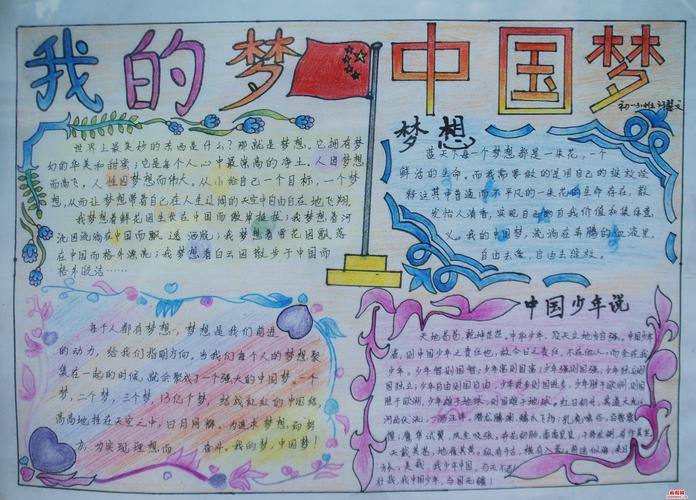 我的梦 中国梦
世界上最美妙的东西是什么?那就是梦想。它拥有梦
幻的华美和甜蜜;它是每个人心中最崇高的净土。人因梦想
而高飞,人性因梦想而伟大。从小给自己一个目标,一个梦
想,从而让梦想带着自己在人生辽阔的天空中自由自在地飞翔。
我梦想着鲜花因生长在中国而傲岸挺拔;我梦想着河
流因流淌在中国而飘逸洒脱;我梦想着雪花因飘落
在中国而格外漂流;我梦想着白云因散步于中国而
格外皎洁……
梦想
蓝天下每一个梦想都是一朵花,一个
鲜活的生命。而我所需要做的是用自己的绽放诠
释这其中普通而不平凡的一朵的生命存在,散
发怡人清香,实现自身的自我价值和集体意
义。我的中国梦,流淌在奔腾的血液里,
自由去爱,自由去绽放。
每个人都有梦想,梦想是我们前进
的动力,给我们指明方向。当我们每个人的梦想聚
集在一起的时候,就会聚成了一个强大的中国梦。一个
梦,二个梦,三个梦,13亿个梦,结成红红的中国结,
高高地挂在天空之中,日月同辉。为追求梦想,而努
力,为实现理想而 奋斗。我的梦,中国梦!
中国少年说
天地苍苍,乾坤茫茫,中华少年,顶天立地当自强。中国少年
者,则中国少年之责任也,故今日之责任,不在他人,而全在我
少年。少年智则国智;少年富则国富;少年强则国强,少年独立则
国独立;少年自由则国自由,少年进步则国进步,少年胜于欧洲,则国
胜于欧洲,少年雄于地球,则国雄于地球。红日初升,其道大光;
河出伏流,一泻汪洋。潜龙腾渊,鳞爪飞扬;乳虎啸谷,百兽震
惶;鹰隼试翼,风尘吸张,奇花初胎,
天戴其苍,地履其黄,纵有千古,横有八荒,前途似海,来日
方长,美哉,我少年中国,与天不老!
壮哉,我中国少年,与国无疆!